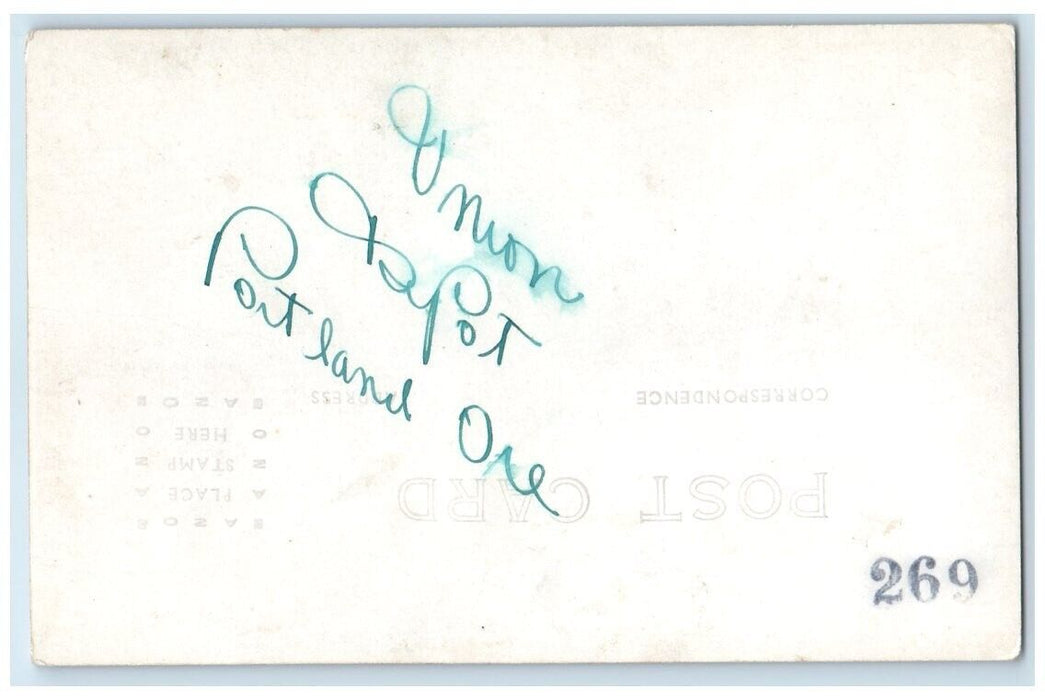 Union
Depot
Portland Ore
CORRESPONDENCE
ADDRESS
POST CARD
AZO
PLACE
STAMP
HERE
269